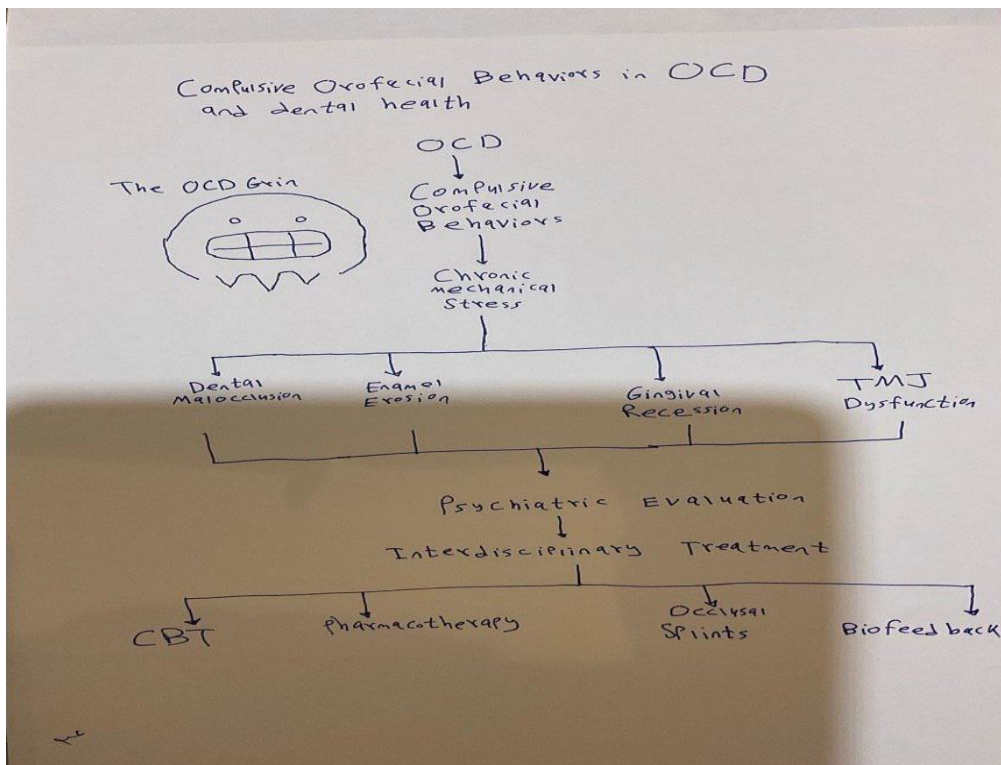 Compulsive Orofacial Behaviors in OCD
and dental health
OCD
The OCD Grin
Compulsive
Orofacial
Behaviors
Chronic
mechanical
Stress
Dental
Malocclusion
Enamel
Erosion
Gingival
Recession
TMJ
Dysfunction
Psychiatric Evaluation
Interdisciplinary Treatment
CBT
Pharmacotherapy
Occlusal
Splints
Biofeedback